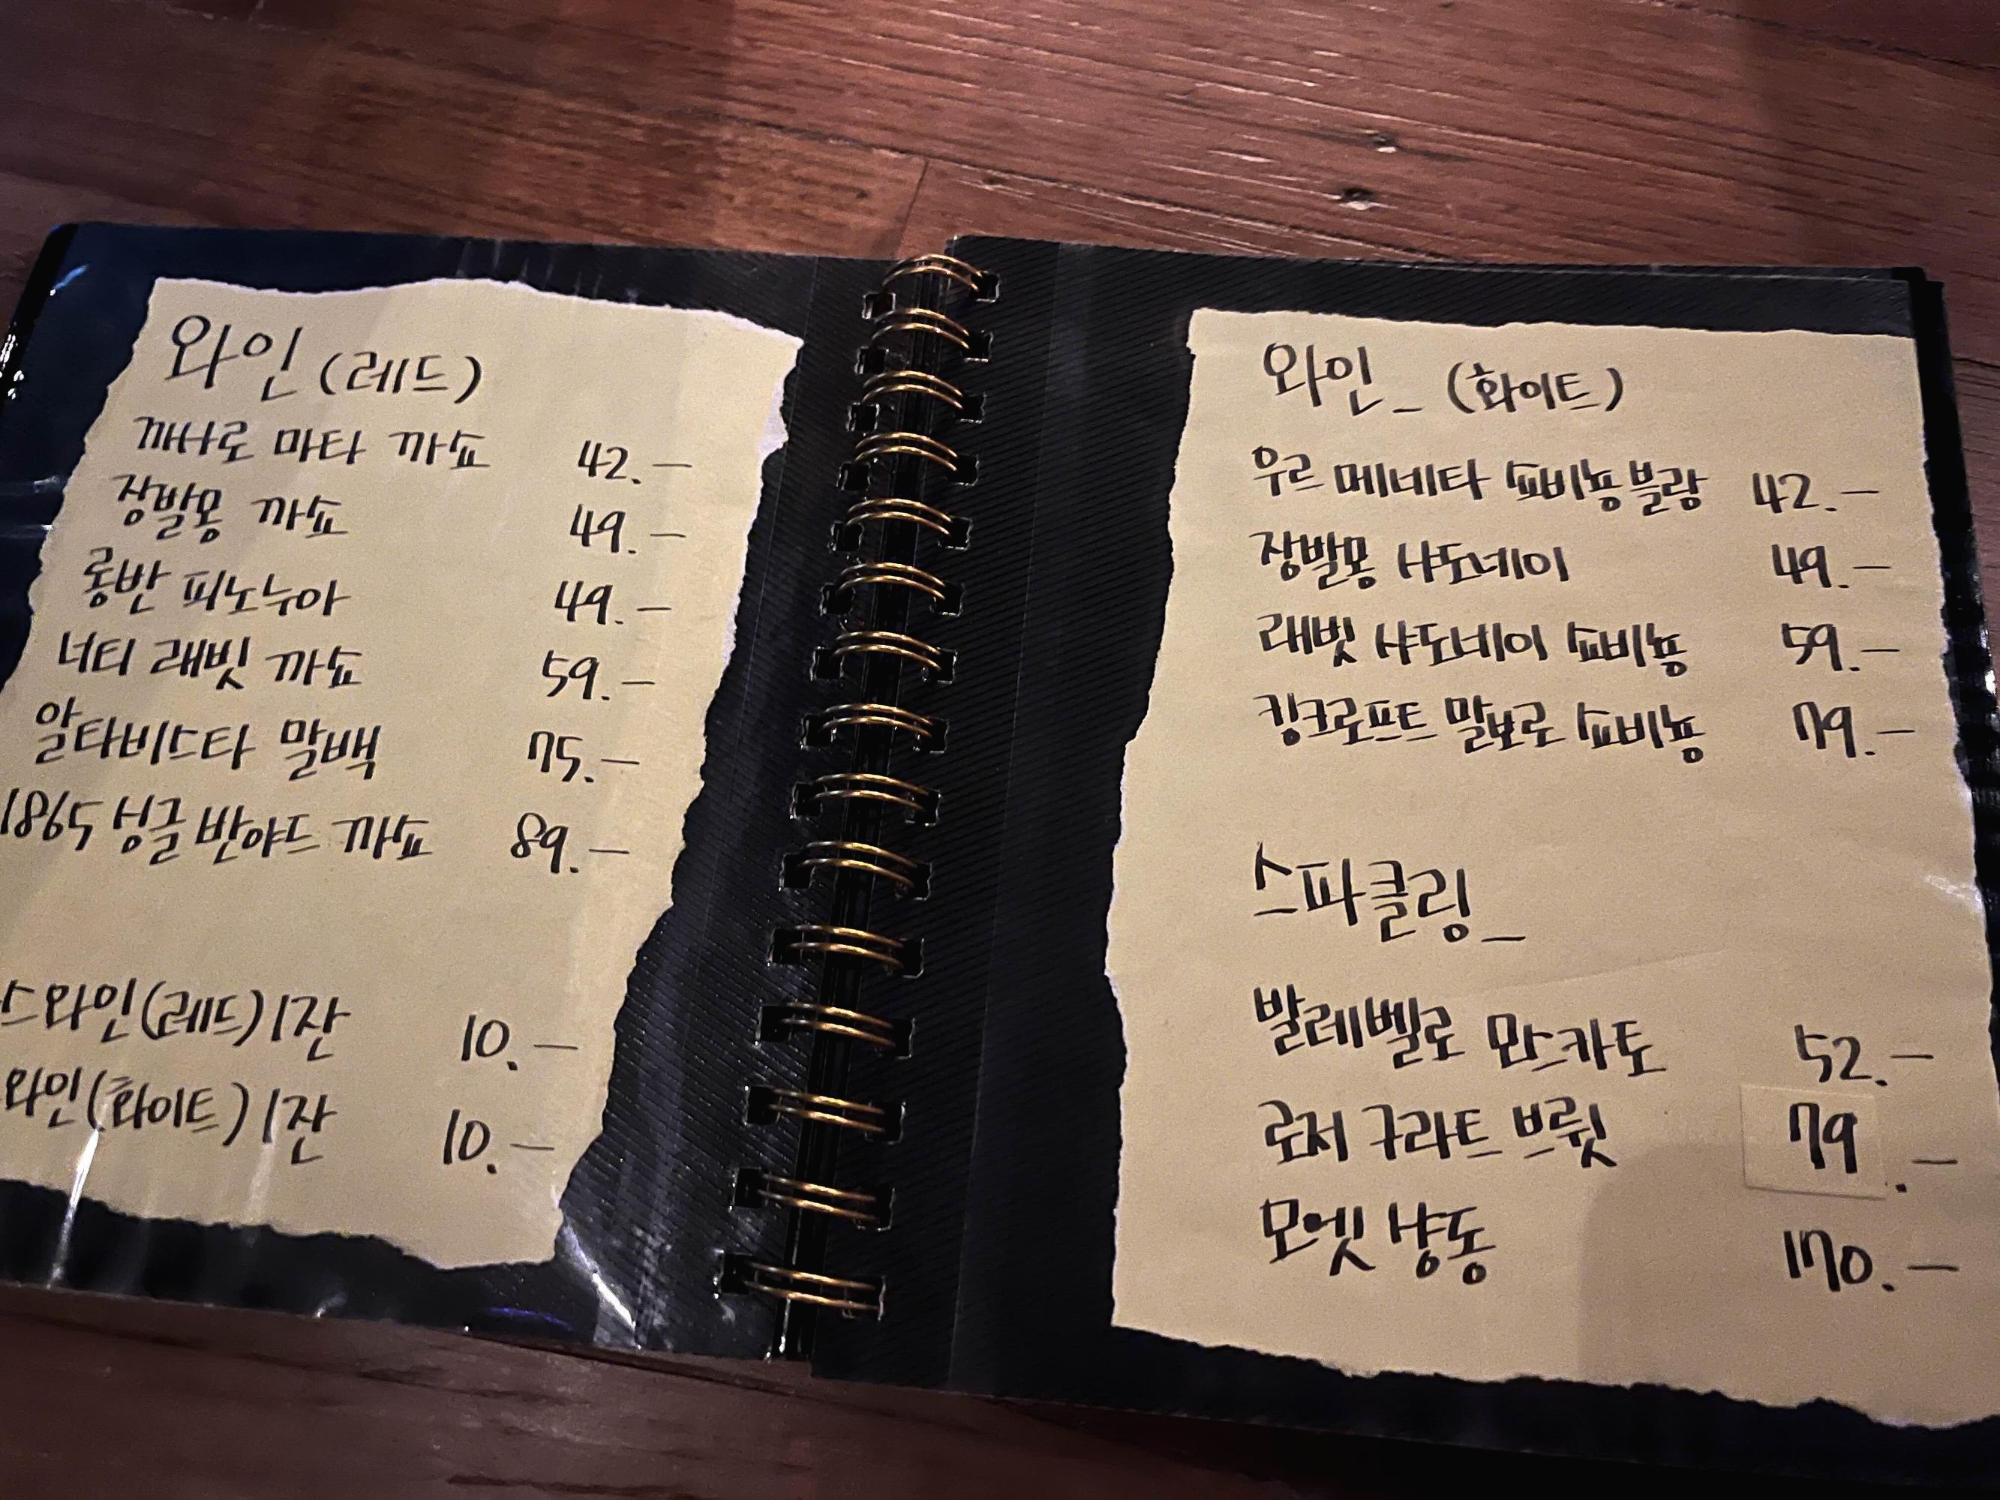 와인 (레드)
까사로 마타 까쇼 42.-
장발몽 까쇼 49.-
롱반 피노누아 49.-
너티 래빗 까쇼 59.-
알타비스타 말백 75.-
1865 싱글 반야드 까쇼 89.-
스와인(레드) 1잔 10.-
와인(화이트) 1잔 10.-
와인_ (화이트)
우르 메네타 쇼비뇽블랑 42.-
장발몽 샤도네이 49.-
래빗 샤도네이 쇼비뇽 59.-
킹크로프트 말보로 쇼비뇽 79.-
스파클링_
발레벨로 모스카토 52.-
로저 구라트 브륏 79.-
모엣 샹동 170.-